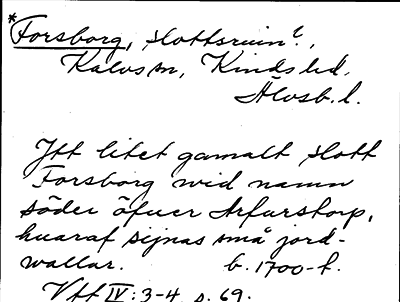 *Forsborg, slottsruin?,
Kalvs sn, Kinds hd,
Älvsb. l.
Ytt litet gamalt slott
Forsborg wid namn
söder öfuer Arfurstorp,
huaraf synas små jord-
wallar. b. 1700-t.
Vtt IV:3-4, s. 69.